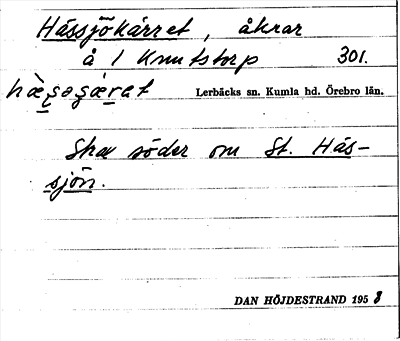 Hässjökärret, åkrar
å 1 Knutstorp 301.
hæ̀ʂəɕæ̀rət Lerbäcks sn. Kumla hd. Örebro län.
Ska söder om St. Häs-
sjön.
DAN HÖJDESTRAND 1958